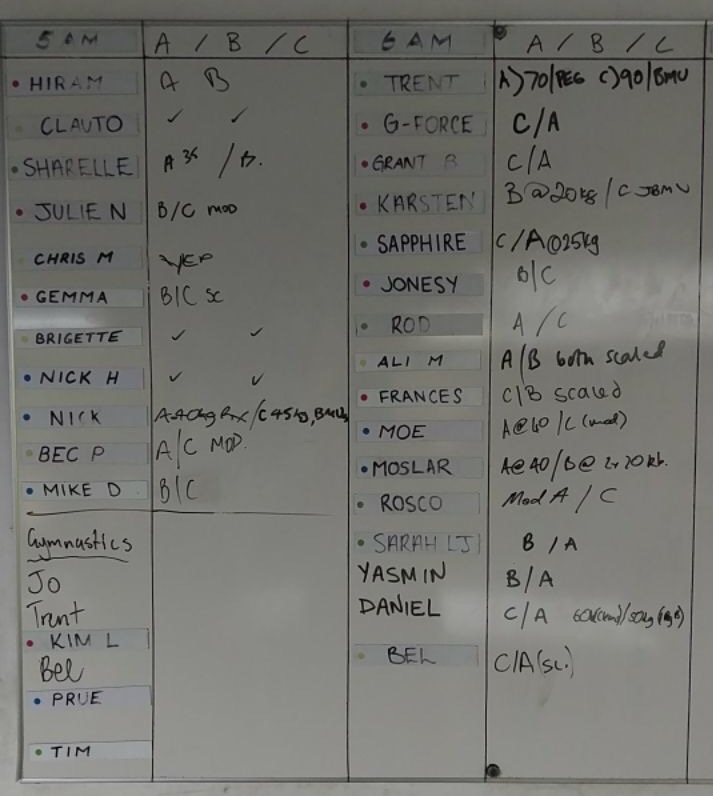 5 AM A / B / C 6 AM A / B / C
HIRAM A B TRENT A) 70/PEG C) 90/BMU
CLAUTO ✓ ✓ G-FORCE C/A
SHARELLE A 35 / B. GRANT B C/A
JULIE N B/C MOD KARSTEN B @ 20kg / C JBMU
CHRIS M YEP SAPPHIRE C/A @25kg
GEMMA B/C SC JONESY B/C
BRIGETTE ✓ ✓ ROD A / C
NICK H ✓ ✓ ALI M A/B both scaled
NICK A 40kg Rx/C 45kg, BMUs FRANCES C/B scaled
BEC P A/C MOD. MOE A@60 / C (mod)
MIKE D B/C MOSLAR A@40/B@ 2x20kb.
ROSCO Mod A / C
Gymnastics SARAH LJ B / A
Jo YASMIN B/A
Trent DANIEL C/A
KIM L
Bel BEL C/A (sc.)
PRUE
TIM